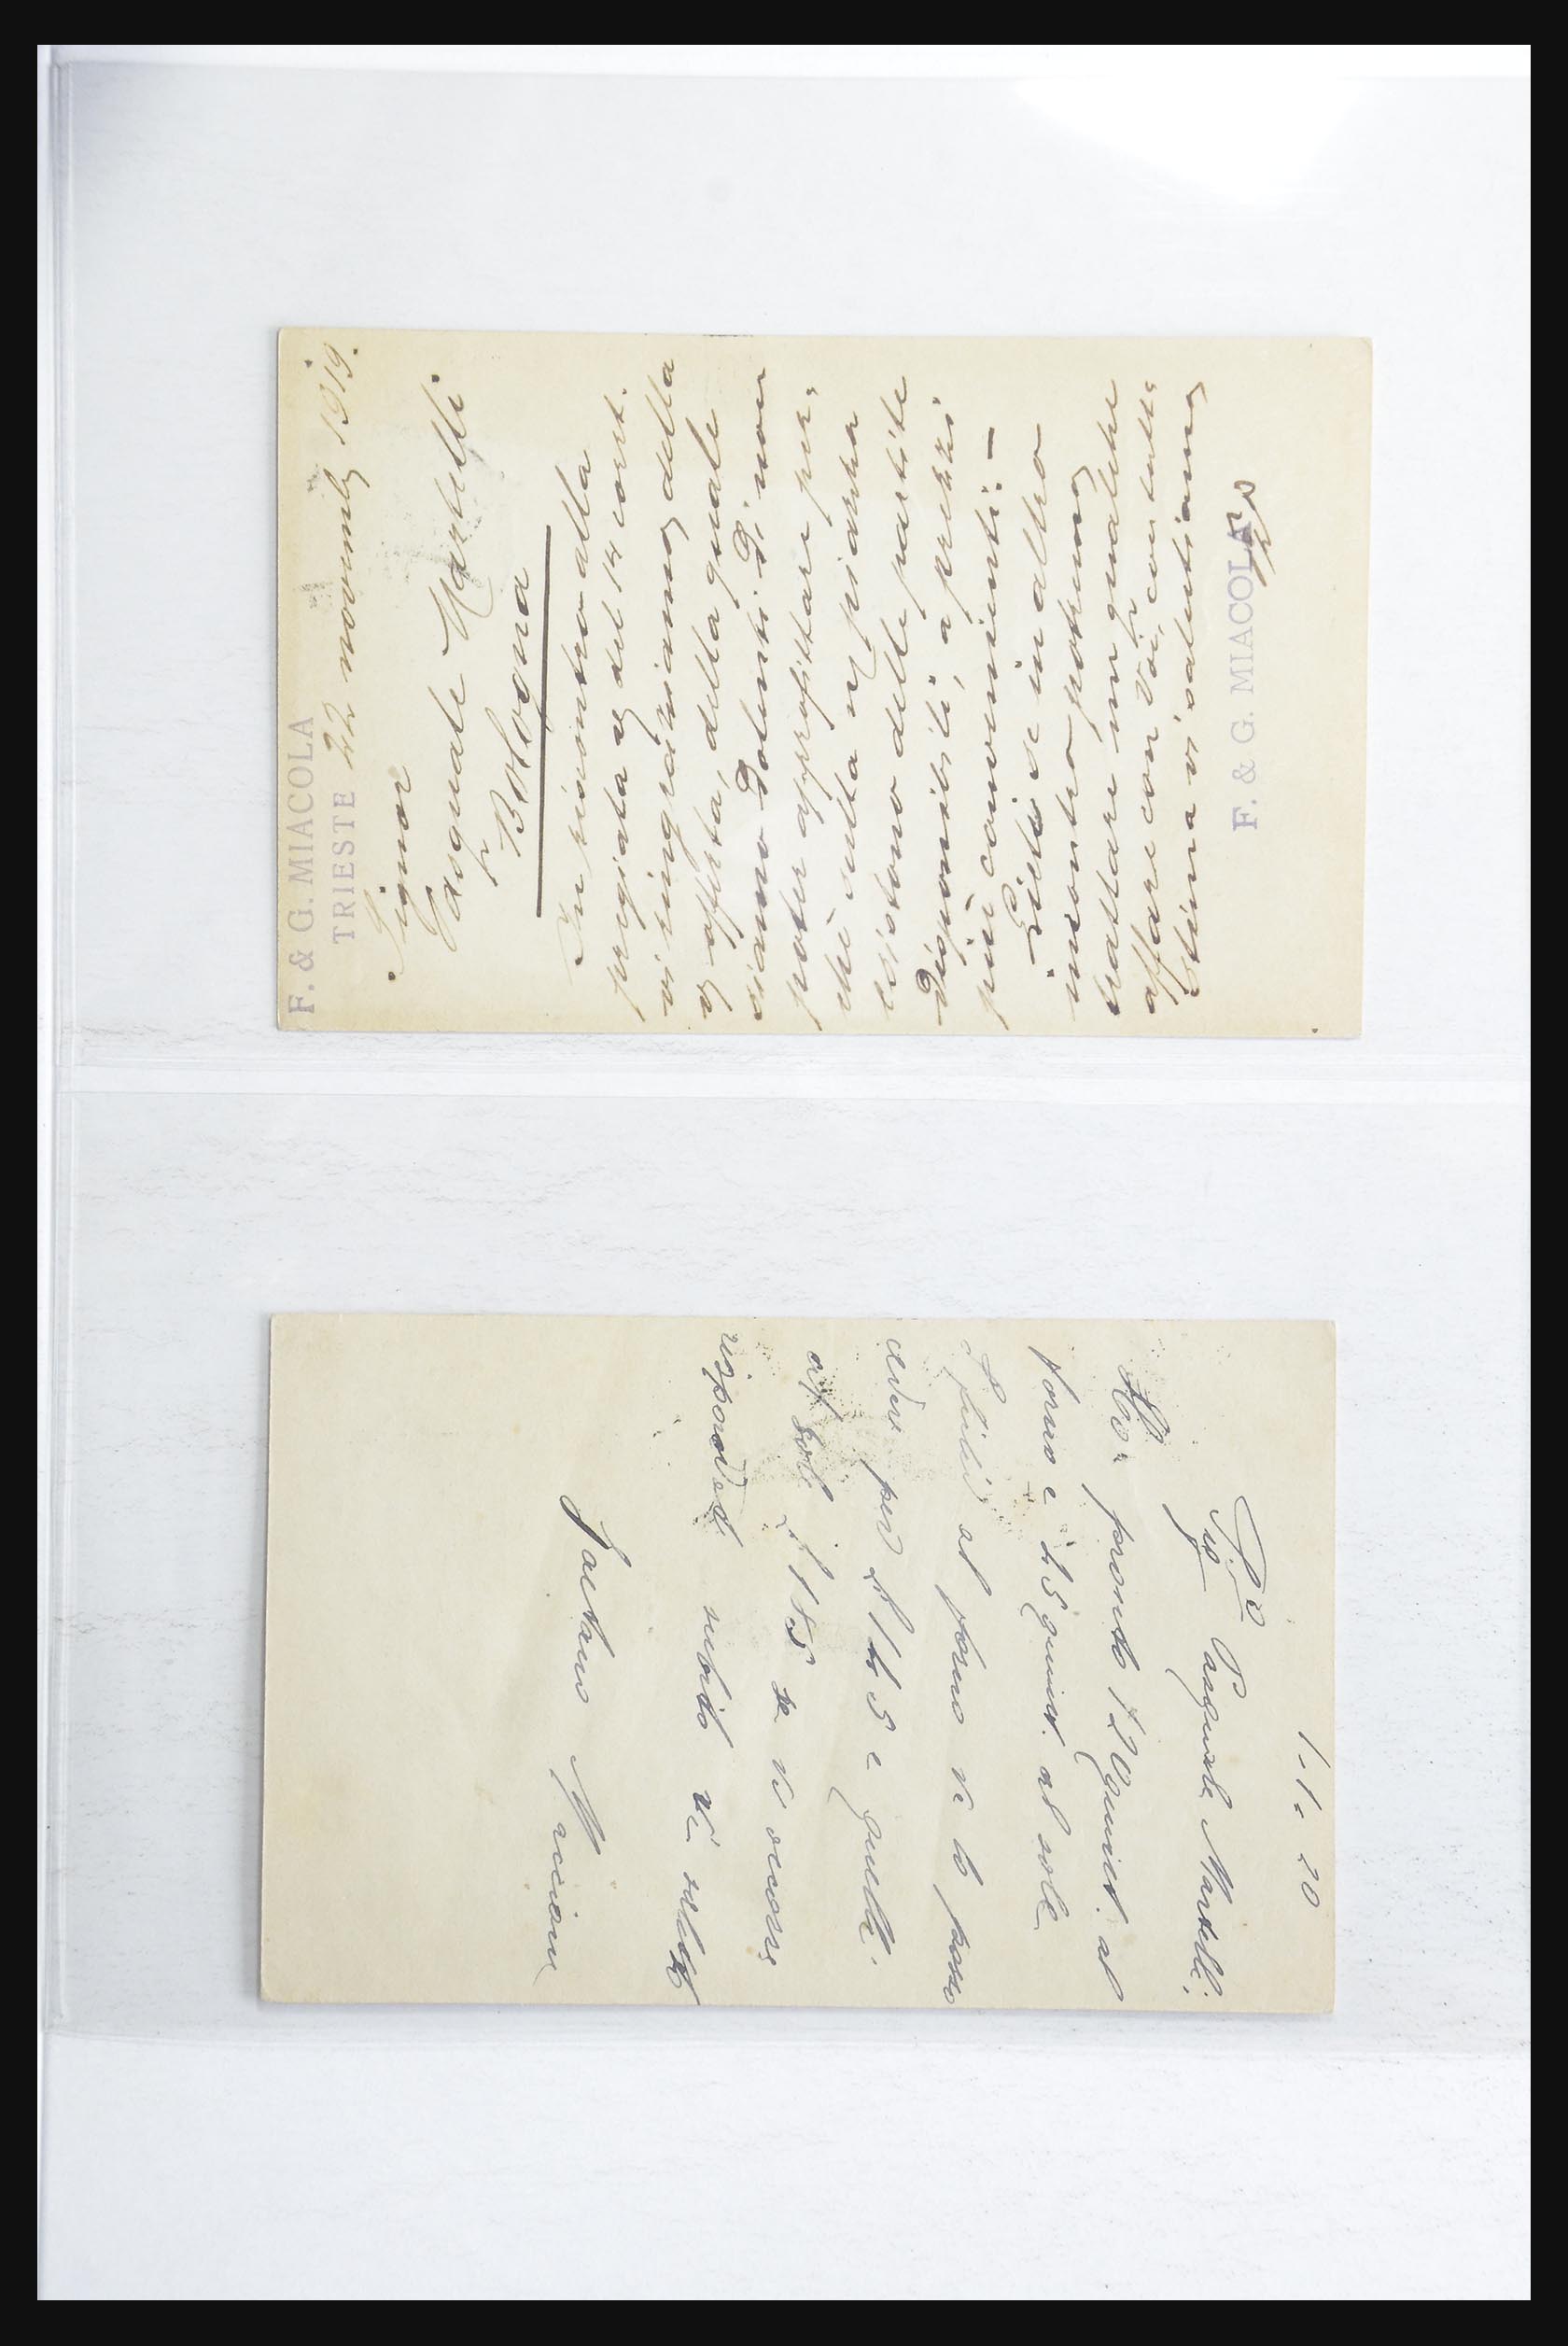 F. & G. MIACOLA
TRIESTE 22 novembre 1919.
Signor
Pasquale Martelli
Bologna
In riscontro alla
pregiata del 14 corrt.
vi ringraziamo della
offerta, della quale
siamo dolenti di non
poter approfittare per,
chè sulla ns piazza
esistono delle partite
disponibili, a prezzi
più convenienti. —
Lieti se in altro
incontro potremo
trattare un qualche
affare con Voi, con tutta
stima vi salutiamo
F. & G. MIACOLA
1-1-20
Sig Pasquale Martelli.
Ho pronto 120 quint. al
forno e 45 quint. al sole
al forno ve lo posso
cedere per £ 145 e quelli
al sole £ 185 se vi occorre
rispondet subito vi saluto
Gaetano